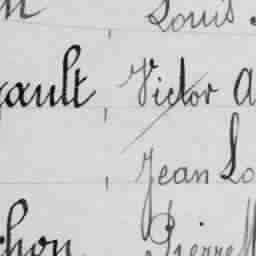 Louis
ault, Victor A
, Jean Lo
chon, Pierre M